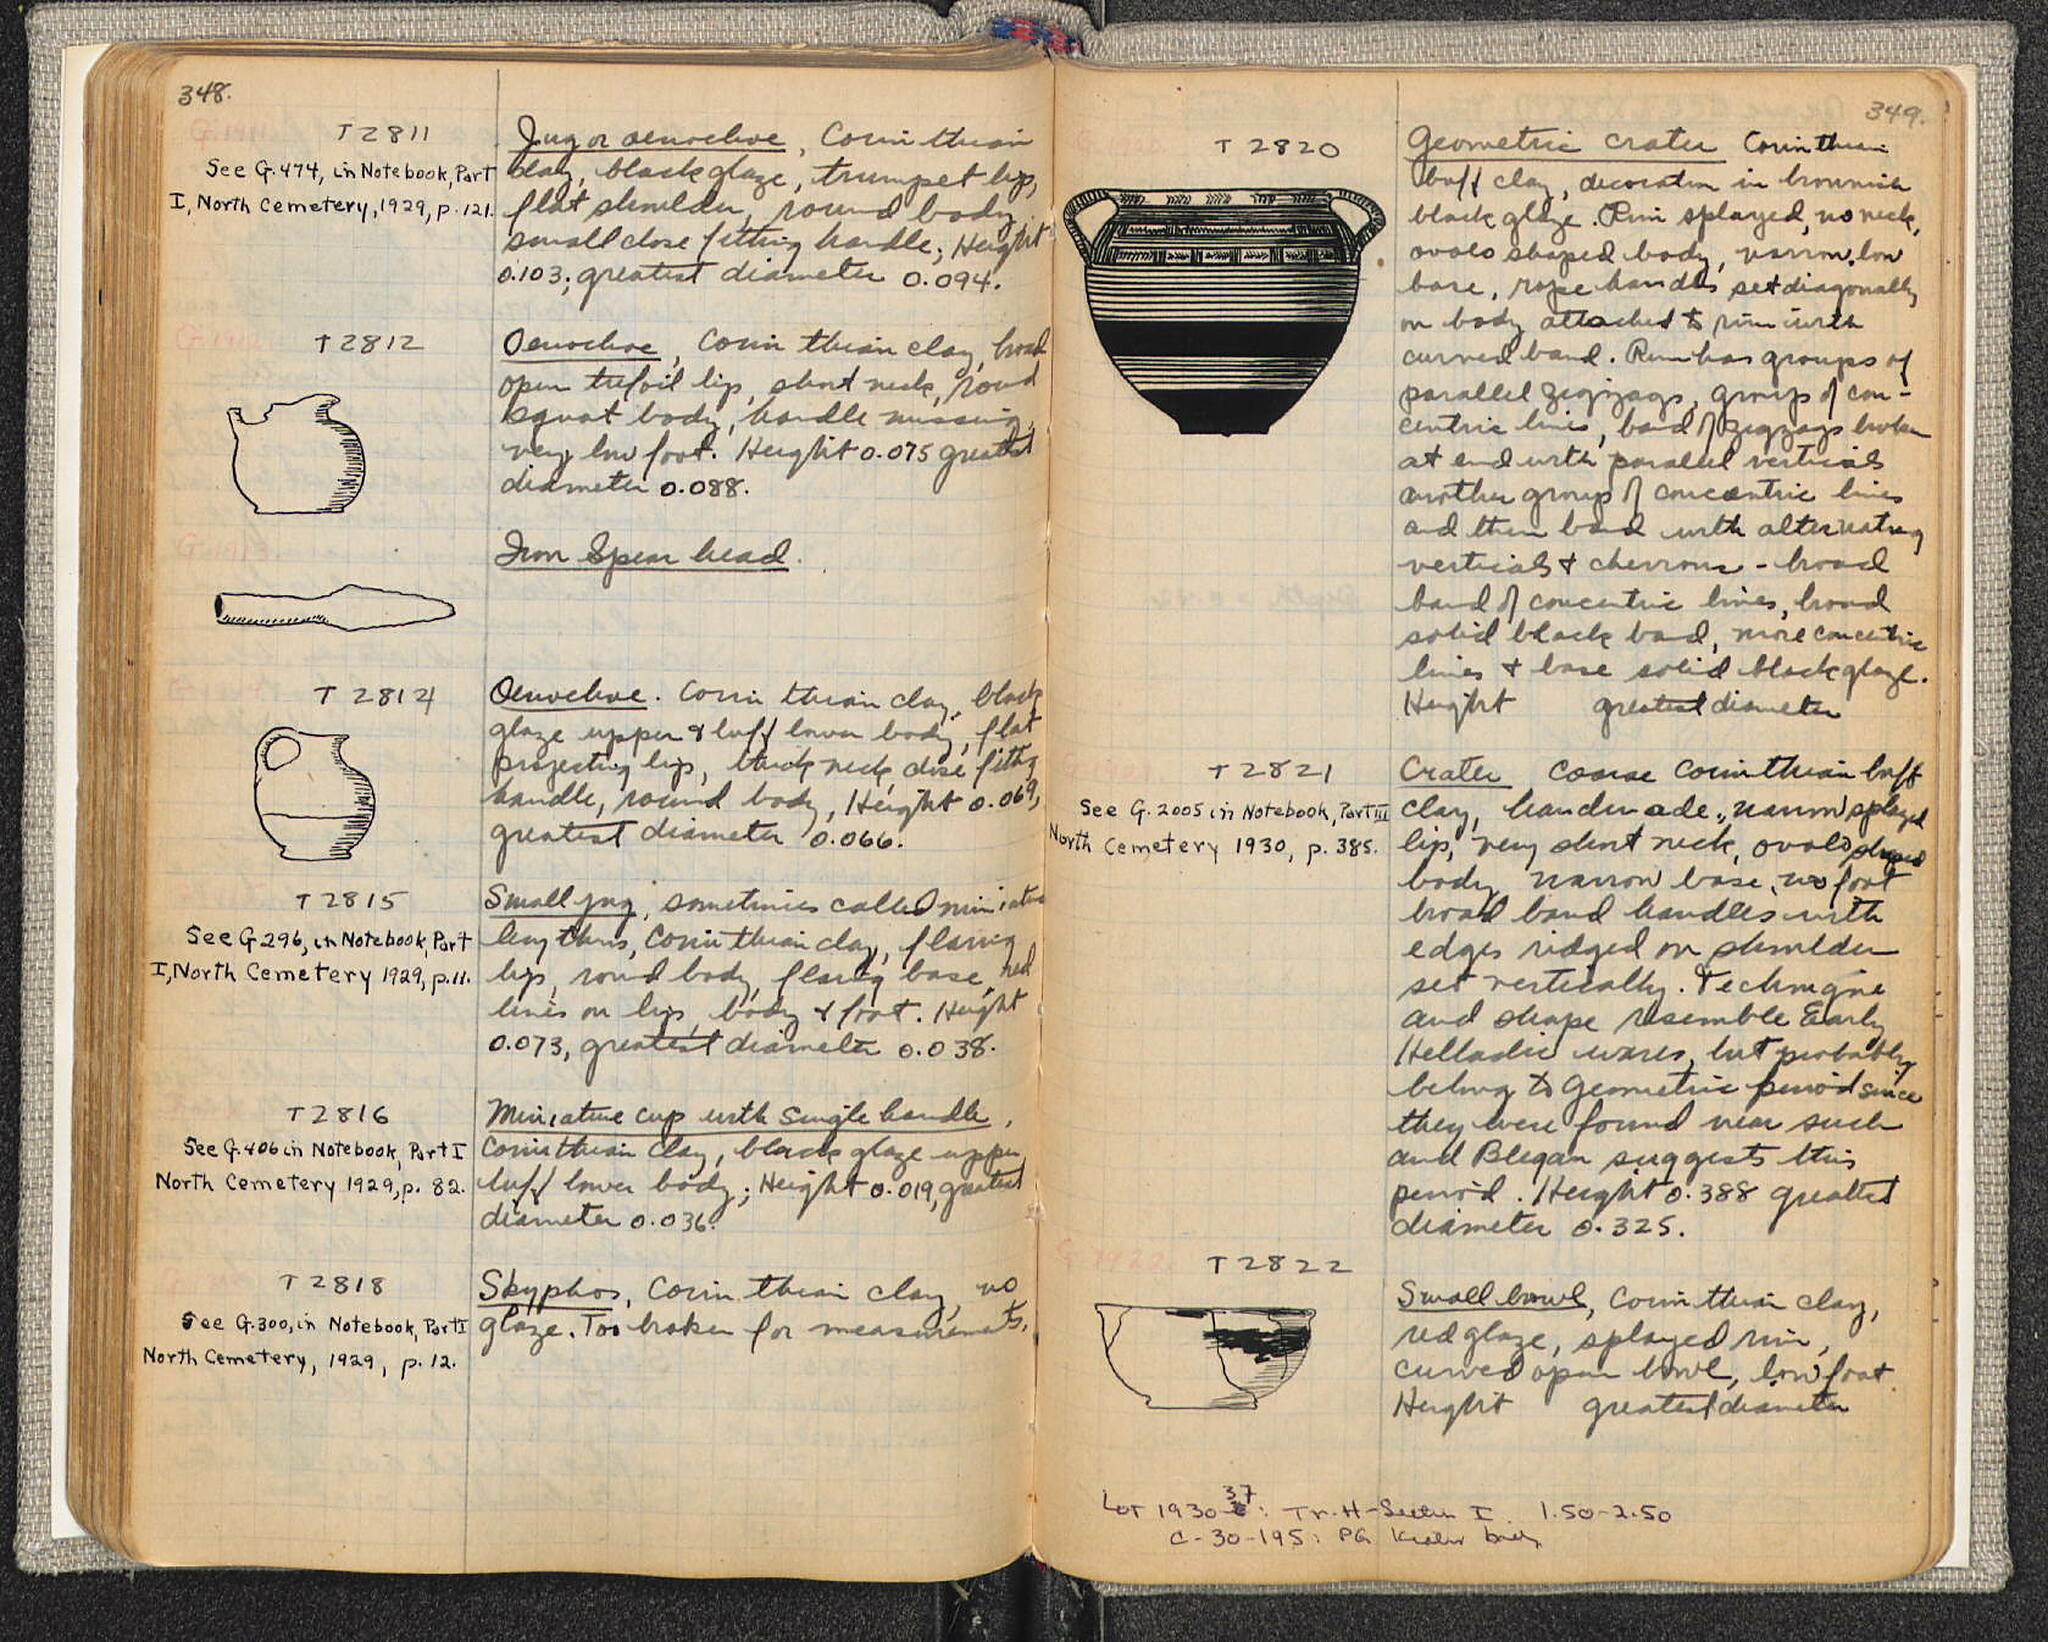 348.
T 2811
See G. 474, in Notebook, Part
I, North Cemetery, 1929, p. 121.
Jug or oenochoe, Corinthian
clay, black glaze, trumpet lip,
flat shoulder, round body
small close fitting handle; Height
0.103; greatest diameter 0.094.
T 2812
Oenochoe, Corinthian clay, broad
open trefoil lip, short neck, round
squat body, handle missing,
very low foot. Height 0.075 greatest
diameter 0.088.
Iron Spear head.
T 2814
Oenochoe. Corinthian clay, black
glaze upper & buff lower body, flat
projecting lip, thick neck, close fitting
handle, round body, Height 0.069,
greatest diameter 0.066.
T 2815
See G 296, in Notebook, Part
I, North Cemetery 1929, p. 11.
Small jug, sometimes called miniature
lecythus, Corinthian clay, flaring
lip, round body, flaring base, red
lines on lip, body & foot. Height
0.073, greatest diameter 0.038.
T 2816
See G. 406 in Notebook, Part I
North Cemetery 1929, p. 82.
Miniature cup with single handle,
Corinthian clay, black glaze upper
buff lower body; Height 0.019, greatest
diameter 0.036.
T 2818
See G. 300, in Notebook, Part I
North Cemetery, 1929, p. 12.
Skyphos, Corinthian clay, no
glaze. Too broken for measurements.
349.
T 2820
Geometric crater Corinthian
buff clay, decoration in brownish
black glaze. Rim splayed, no neck,
ovolo shaped body, narrow, low
base, rope handles set diagonally
on body attached to rim with
curved band. Rim has groups of
parallel zigzags, group of con-
centric lines, band of zigzags broken
at end with parallel verticals
another group of concentric lines
and then band with alternating
verticals & chevrons - broad
band of concentric lines, broad
solid black band, more concentric
lines & base solid black glaze.
Height greatest diameter
T 2821
See G. 2005 in Notebook, Part III
North Cemetery 1930, p. 385.
Crater coarse Corinthian buff
clay, handmade, narrow splayed
lip, very short neck, ovolo shaped
body, narrow base, no foot
broad band handles with
edges ridged on shoulder
set vertically. Technique
and shape resemble Early
Helladic wares, but probably
belong to Geometric period since
they were found near such
and Blegan suggests this
period. Height 0.388 greatest
diameter 0.325.
G. 1922.
T 2822
Small bowl, Corinthian clay,
red glaze, splayed rim,
curved open bowl, low foot
Height greatest diameter
Lot 1930-37: Tr. H-Section I. 1.50-2.50
C-30-195: PG Krater body